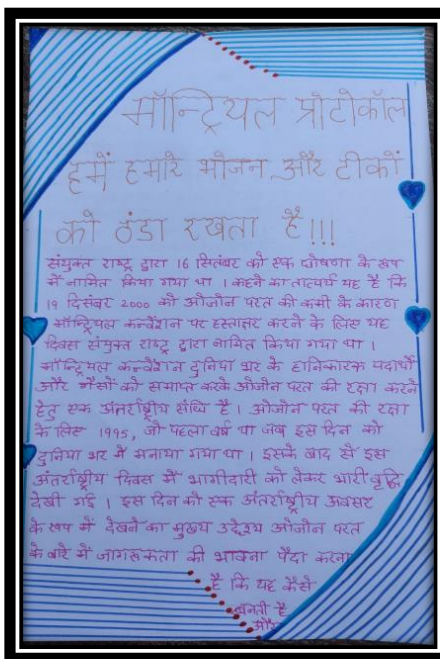 मॉन्ट्रियल प्रोटोकॉल
हमें हमारे भोजन और टीकों
को ठंडा रखता है!!!
संयुक्त राष्ट्र द्वारा 16 सितंबर को एक घोषणा के रूप
में नामित किया गया था । कहने का तात्पर्य यह है कि
19 दिसंबर 2000 को ओजोन परत की कमी के कारण
मॉन्ट्रियल कन्वेंशन पर हस्ताक्षर करने के लिए यह
दिवस संयुक्त राष्ट्र द्वारा नामित किया गया था ।
मॉन्ट्रियल कन्वेंशन दुनिया भर के हानिकारक पदार्थों
और गैसों को समाप्त करके ओजोन परत की रक्षा करने
हेतु एक अंतर्राष्ट्रीय संधि है । ओजोन परत की रक्षा
के लिए 1995, जो पहला वर्ष था जब इस दिन को
दुनिया भर में मनाया गया था । इसके बाद से इस
अंतर्राष्ट्रीय दिवस में भागीदारी को लेकर भारी वृद्धि
देखी गई । इस दिन को एक अंतर्राष्ट्रीय अवसर
के रूप में देखने का मुख्य उद्देश्य ओजोन परत
के बारे में जागरूकता की भावना पैदा करना
है कि यह कैसे
बनती है
और